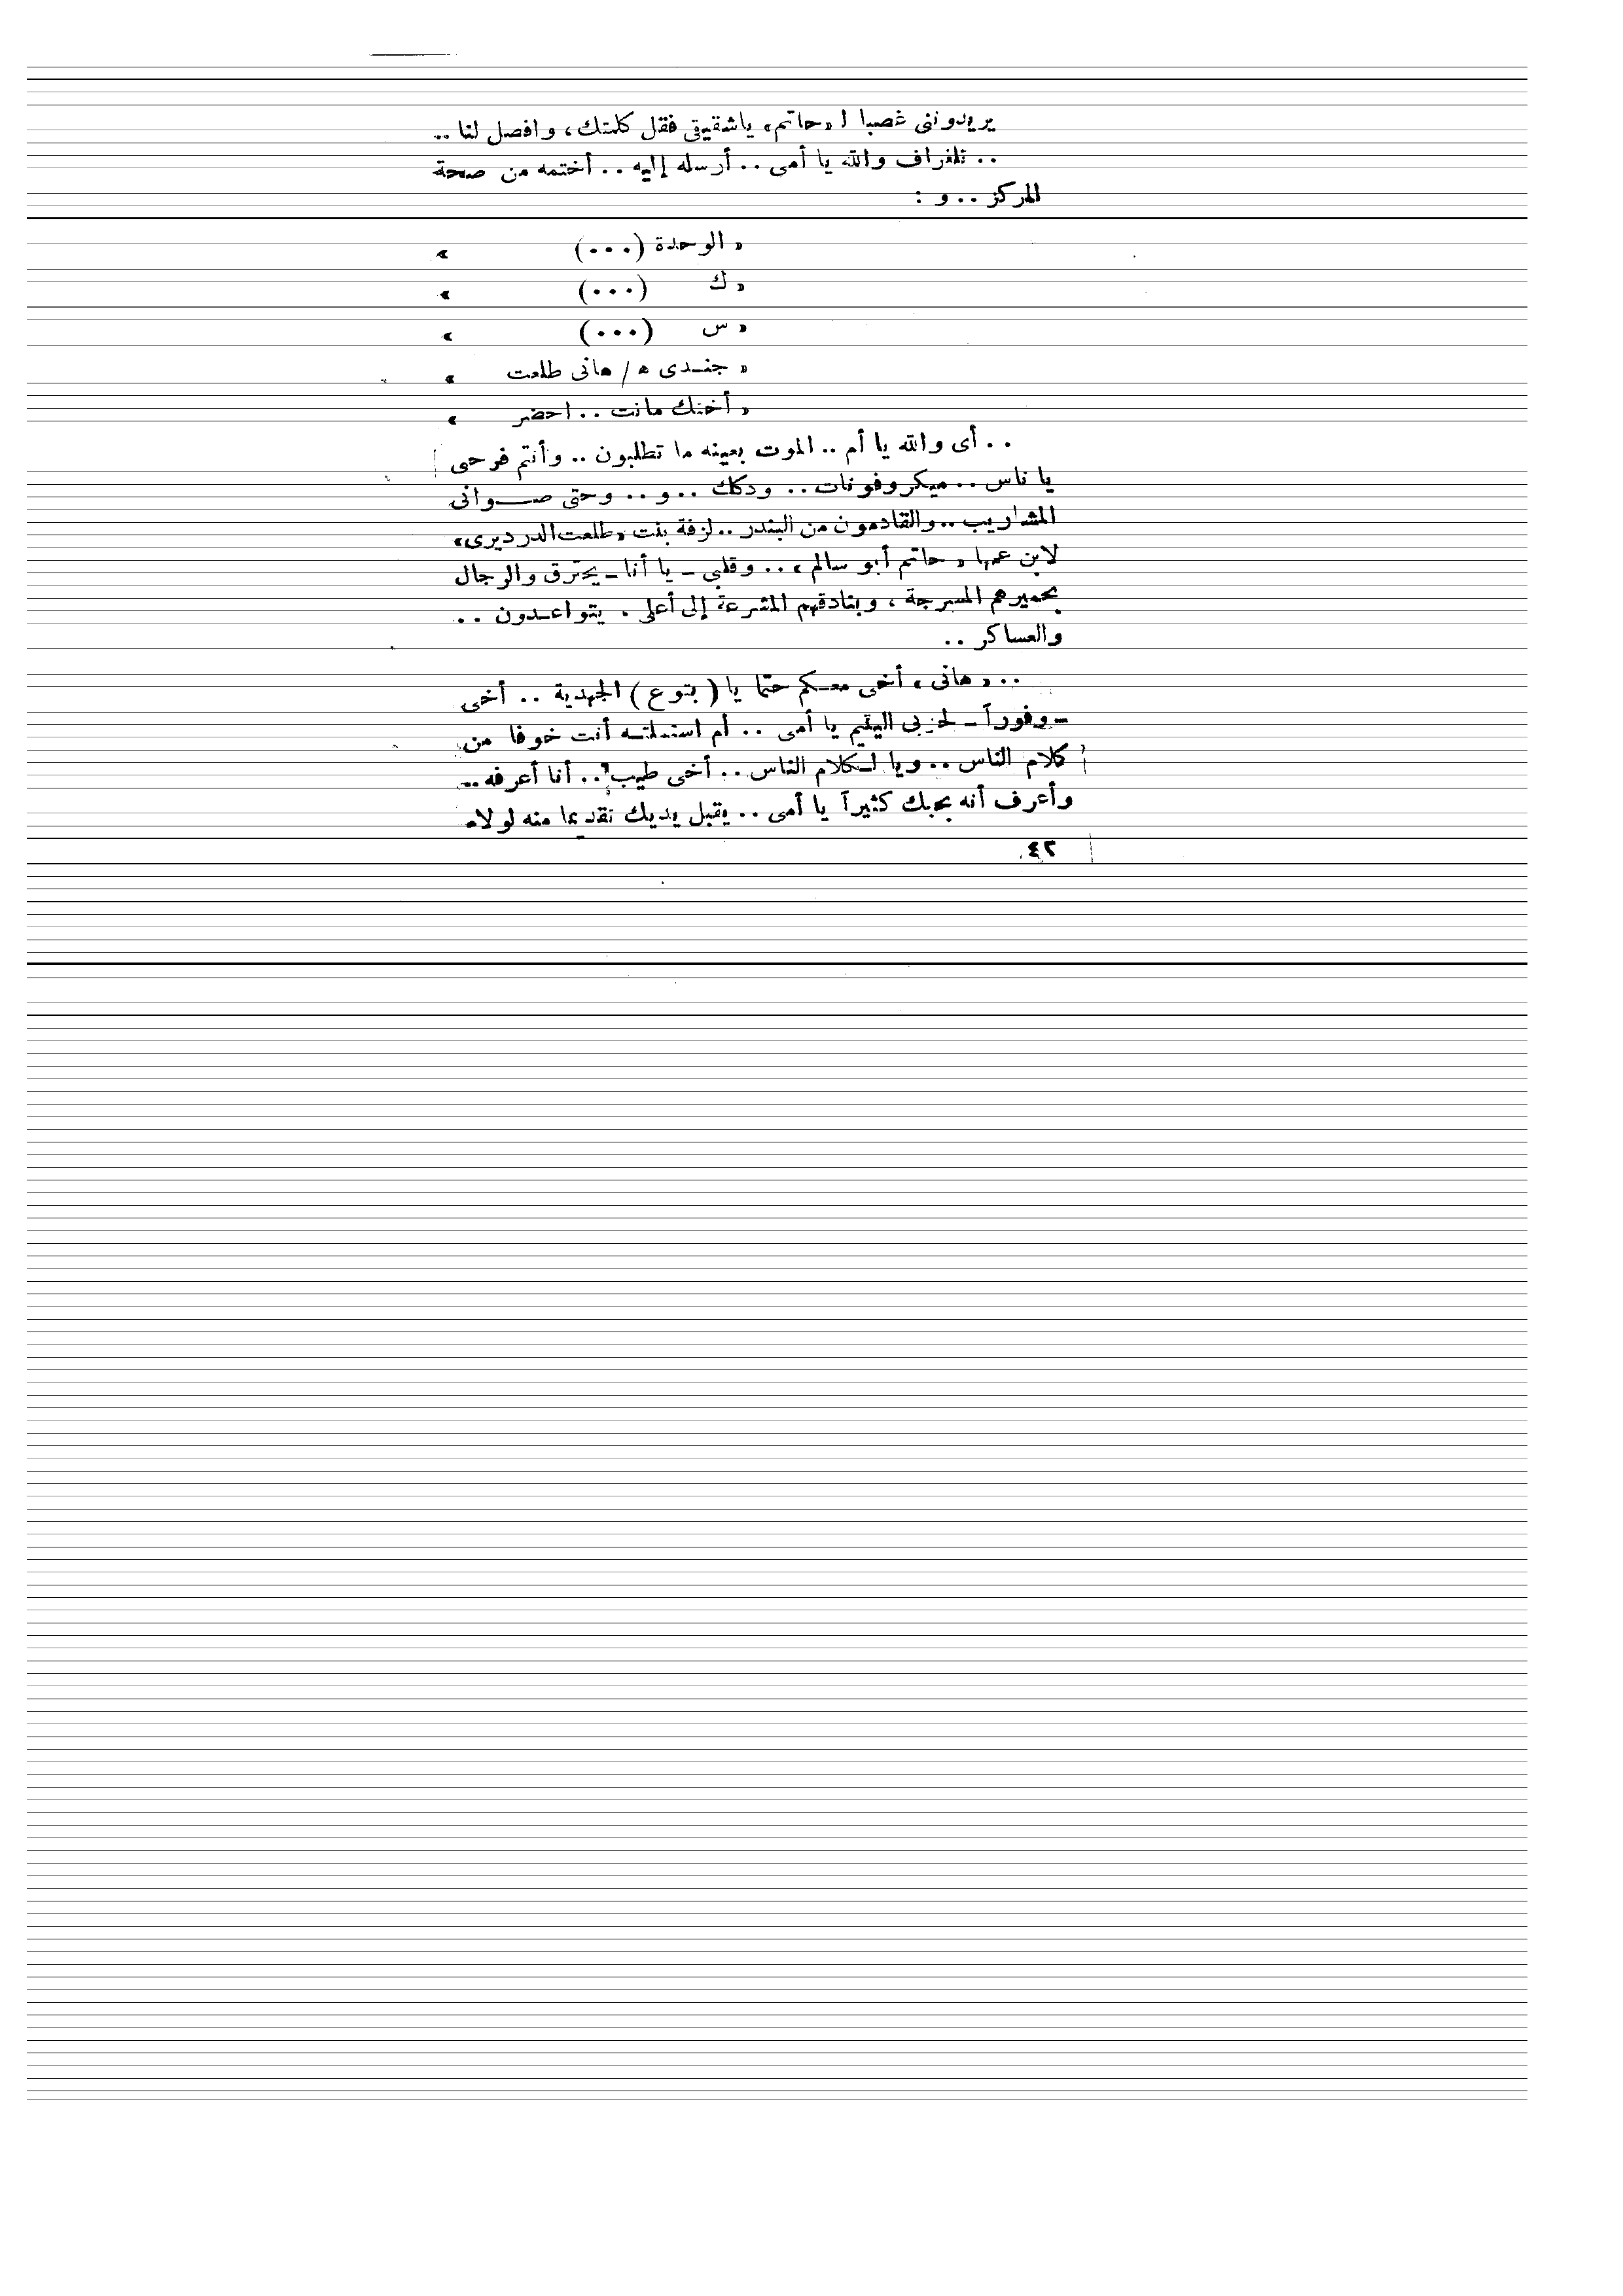 يريدونني غصبا لـ «حاتم» ياشقيقى فقل كلمتك، وافصل لنا ..
.. تلغراف والله يا أمى .. أرسله إليه .. أختمه من صحة
المركز .. و :
« الوحدة (...) »
« ك (...) »
« س (...) »
« جنـدى ه / هانى طلعت »
« أختك ماتت .. احضر »
.. أى والله يا أم .. الموت بعينه ما تطلبون .. وأنتم فرحى
يا ناس .. ميكروفونات .. ودكك .. و .. وحتى صــوانى
المشاريب .. والقادمون من البندر .. لزفة بنت «طلعت الدرديرى»
لابن عمها « حاتم أبو سالم » .. وقلبى ــ يا أنا ــ يحترق والرجال
بحميرهم المسرجة ، وبنادقهم المشرعة إلى أعلى . يتواعـدون ..
والعساكر ..
.. « هانى » أخى معـكم حتما يا ( بتوع ) الجهدية .. أخى
ــ وفوراً ــ لحزبى اليقيم يا أمى .. أم استملتـه أنت خوفا من
كلام الناس .. ويا لـكلام الناس .. أخى طيب .. أنا أعرفه ..
وأعرف أنه يحبك كثيراً يا أمى .. يقبل يديك تقديما منه لولاه
٤٢